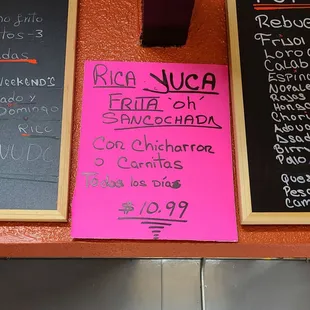 nito
tos-3
das
WEEKEND
ado y
Domingo
Rico
NUDO
RICA YUCA
FRITA "oh"
SANCOCHADA
Con Chicharron
o Carnitas
Todos los días
$10.99
Rebue
Frijol
Loro
Calab
Espin
Nopale
Rajas
Chori
Adova
Asad
Birri
Pollo
Que
Pesc
Cam